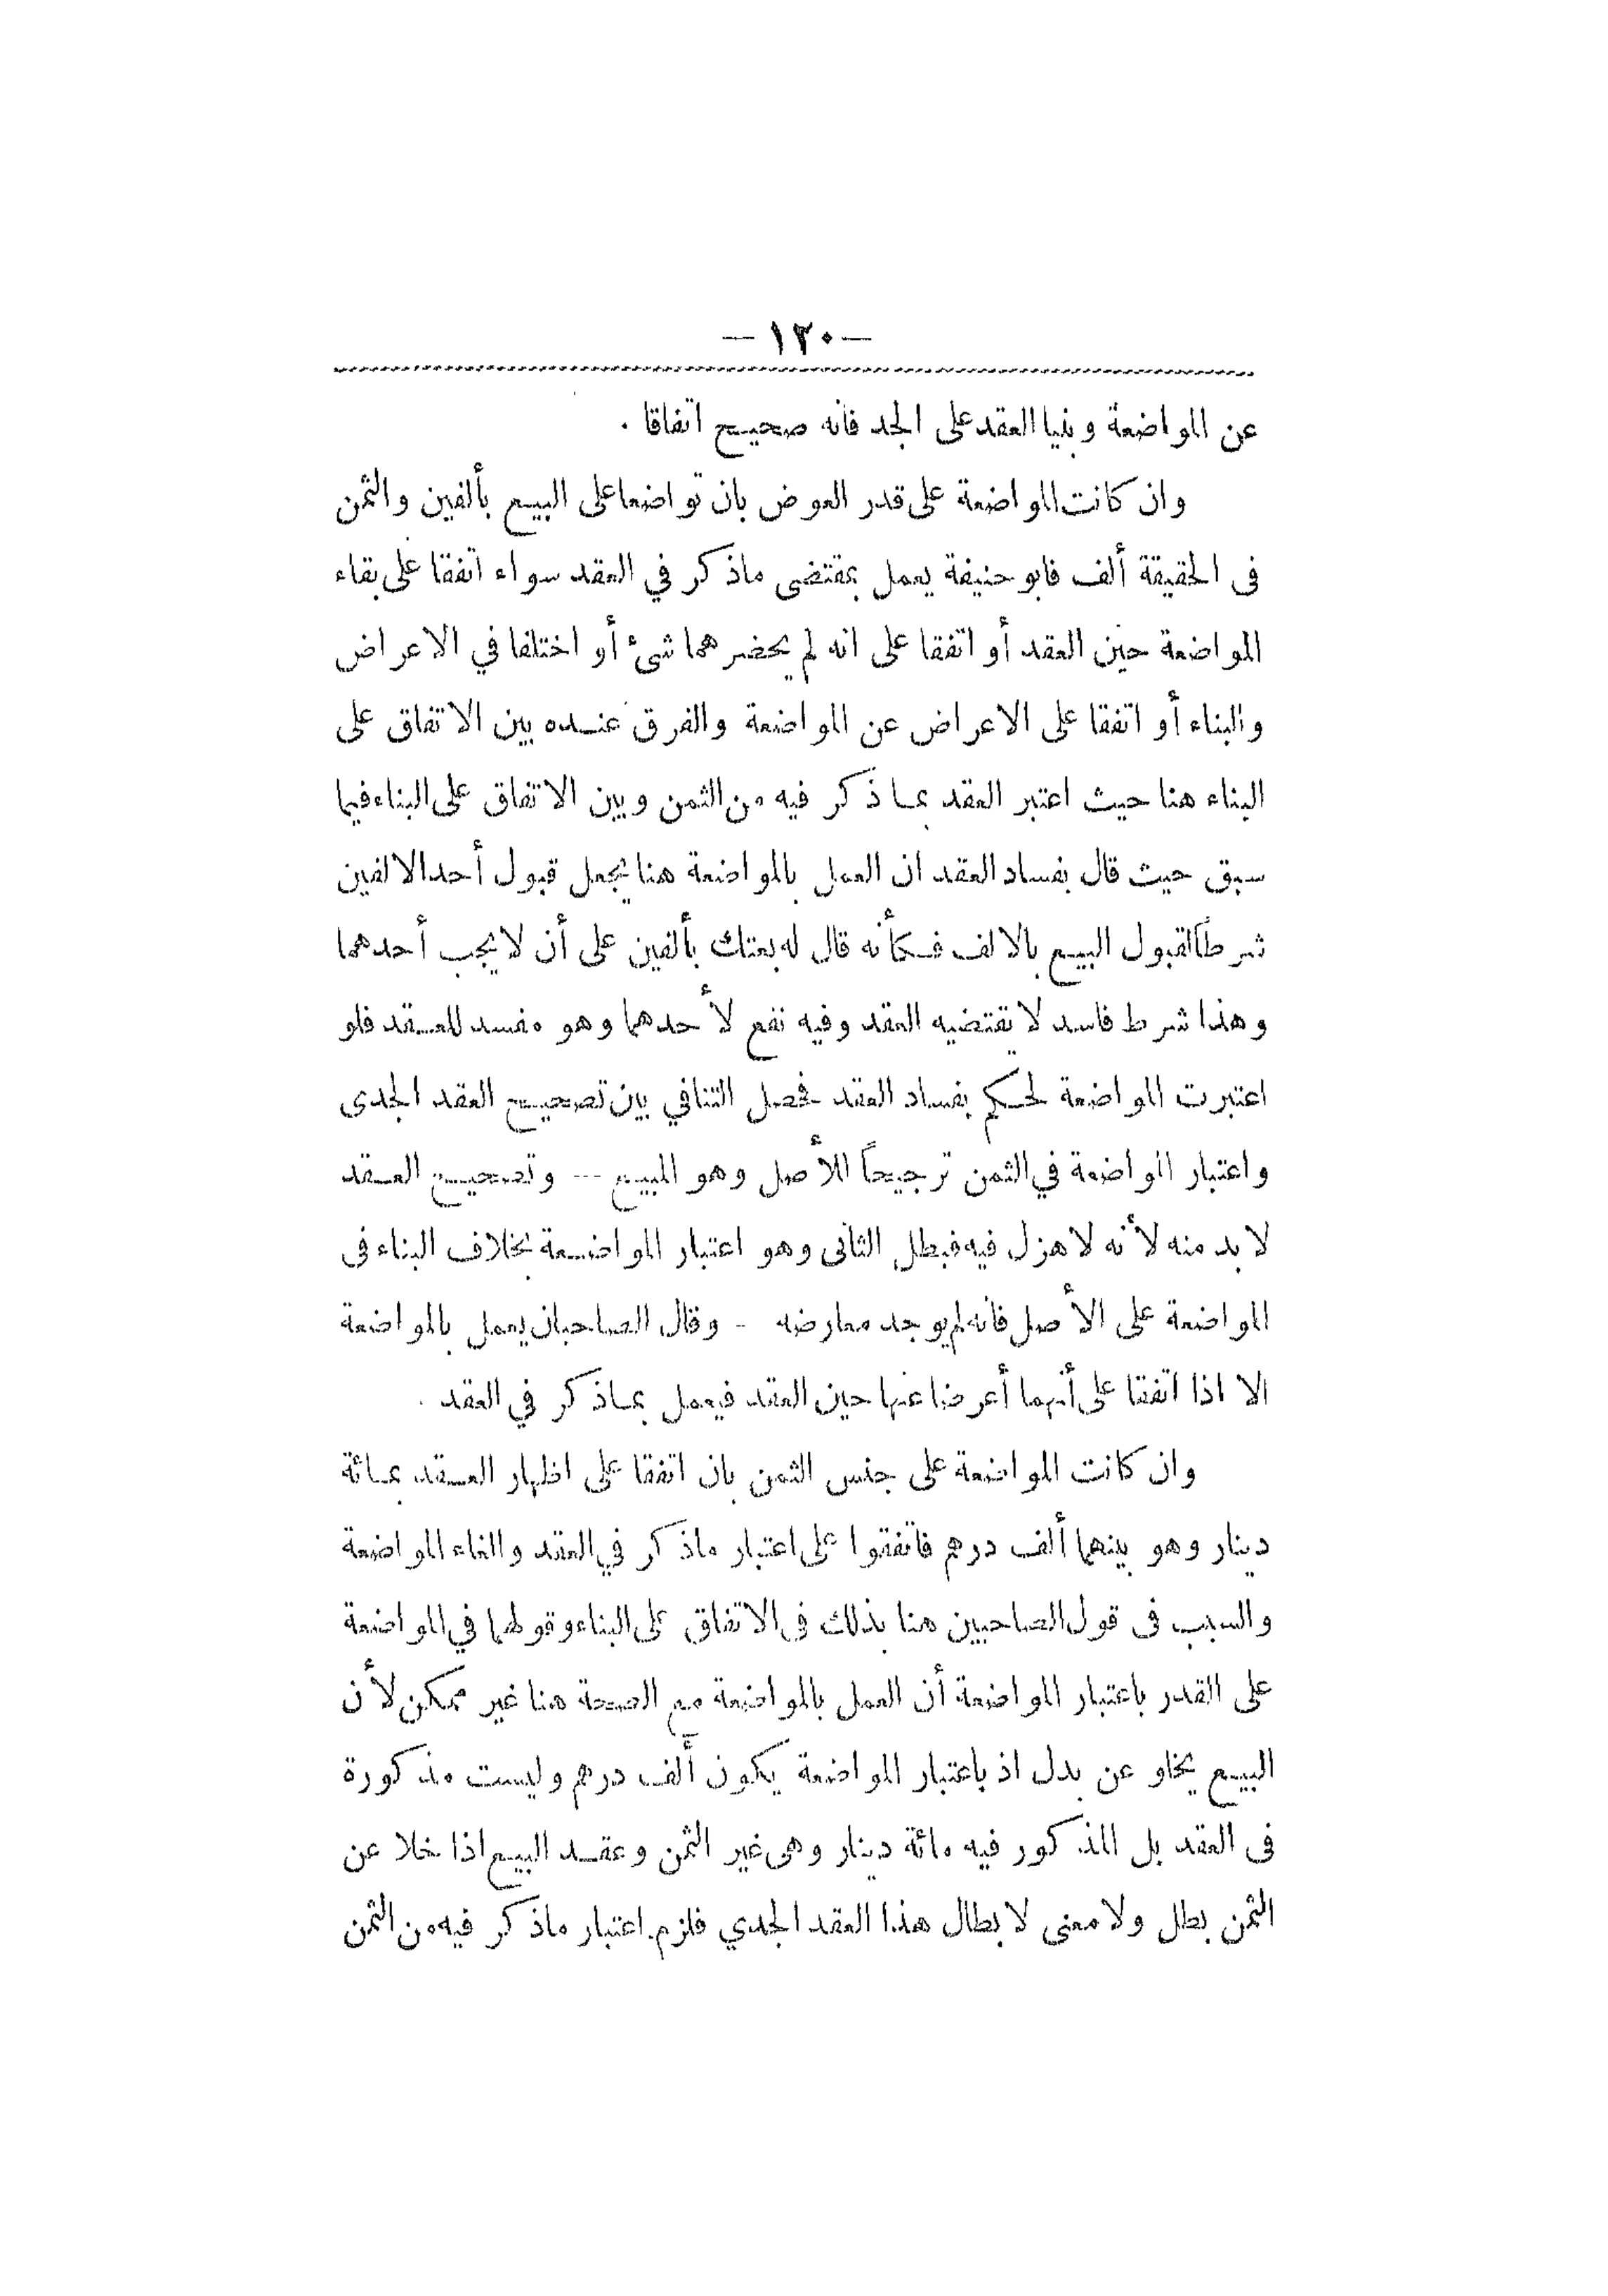 — ١٣٠ —
عن المواضعة وبنيا العقد على الجد فانه صحيح اتفاقا .
وان كانت المواضعة على قدر العوض بان تواضعا على البيع بألفين والثمن
فى الحقيقة ألف فابو حنيفة يعمل بمقتضى ماذكر في العقد سواء اتفقا على بقاء
المواضعة حين العقد أو اتفقا على انه لم يحضرهما شئ أو اختلفا في الاعراض
والبناء أو اتفقا على الاعراض عن المواضعة والفرق عنده بين الاتفاق على
البناء هنا حيث اعتبر العقد بما ذكر فيه من الثمن وبين الاتفاق على البناء فيما
سبق حيث قال بفساد العقد ان العمل بالمواضعة هنا يجعل قبول أحد الالفين
شرطاً لقبول البيع بالالف فكأنه قال له بعتك بألفين على أن لا يجب أحدهما
وهذا شرط فاسد لا يقتضيه العقد وفيه نفع لأحدهما وهو مفسد للعقد فلو
اعتبرت المواضعة لحكم بفساد العقد فحصل التنافي بين تصحيح العقد الجدى
واعتبار المواضعة في الثمن ترجيحاً للأصل وهو المبيع --- وتصحيح العقد
لا بد منه لأنه لا هزل فيه فبطل الثانى وهو اعتبار المواضعة بخلاف البناء فى
المواضعة على الأصل فانه لم يوجد معارضه - وقال الصاحبان يعمل بالمواضعة
الا اذا اتفقا على أنهما أعرضا عنها حين العقد فيعمل بما ذكر في العقد .
وان كانت المواضعة على جنس الثمن بان اتفقا على اظهار العقد بمائة
دينار وهو بينهما ألف درهم فاتفقوا على اعتبار ماذكر في العقد والغاء المواضعة
والسبب فى قول الصاحبين هنا بذلك فى الاتفاق على البناء وقولهما في المواضعة
على القدر باعتبار المواضعة أن العمل بالمواضعة مع الصحة هنا غير ممكن لأن
البيع يخلو عن بدل اذ باعتبار المواضعة يكون ألف درهم وليست مذكورة
فى العقد بل المذكور فيه مائة دينار وهى غير الثمن وعقد البيع اذا خلا عن
الثمن بطل ولا معنى لابطال هذا العقد الجدي فلزم اعتبار ماذكر فيه من الثمن